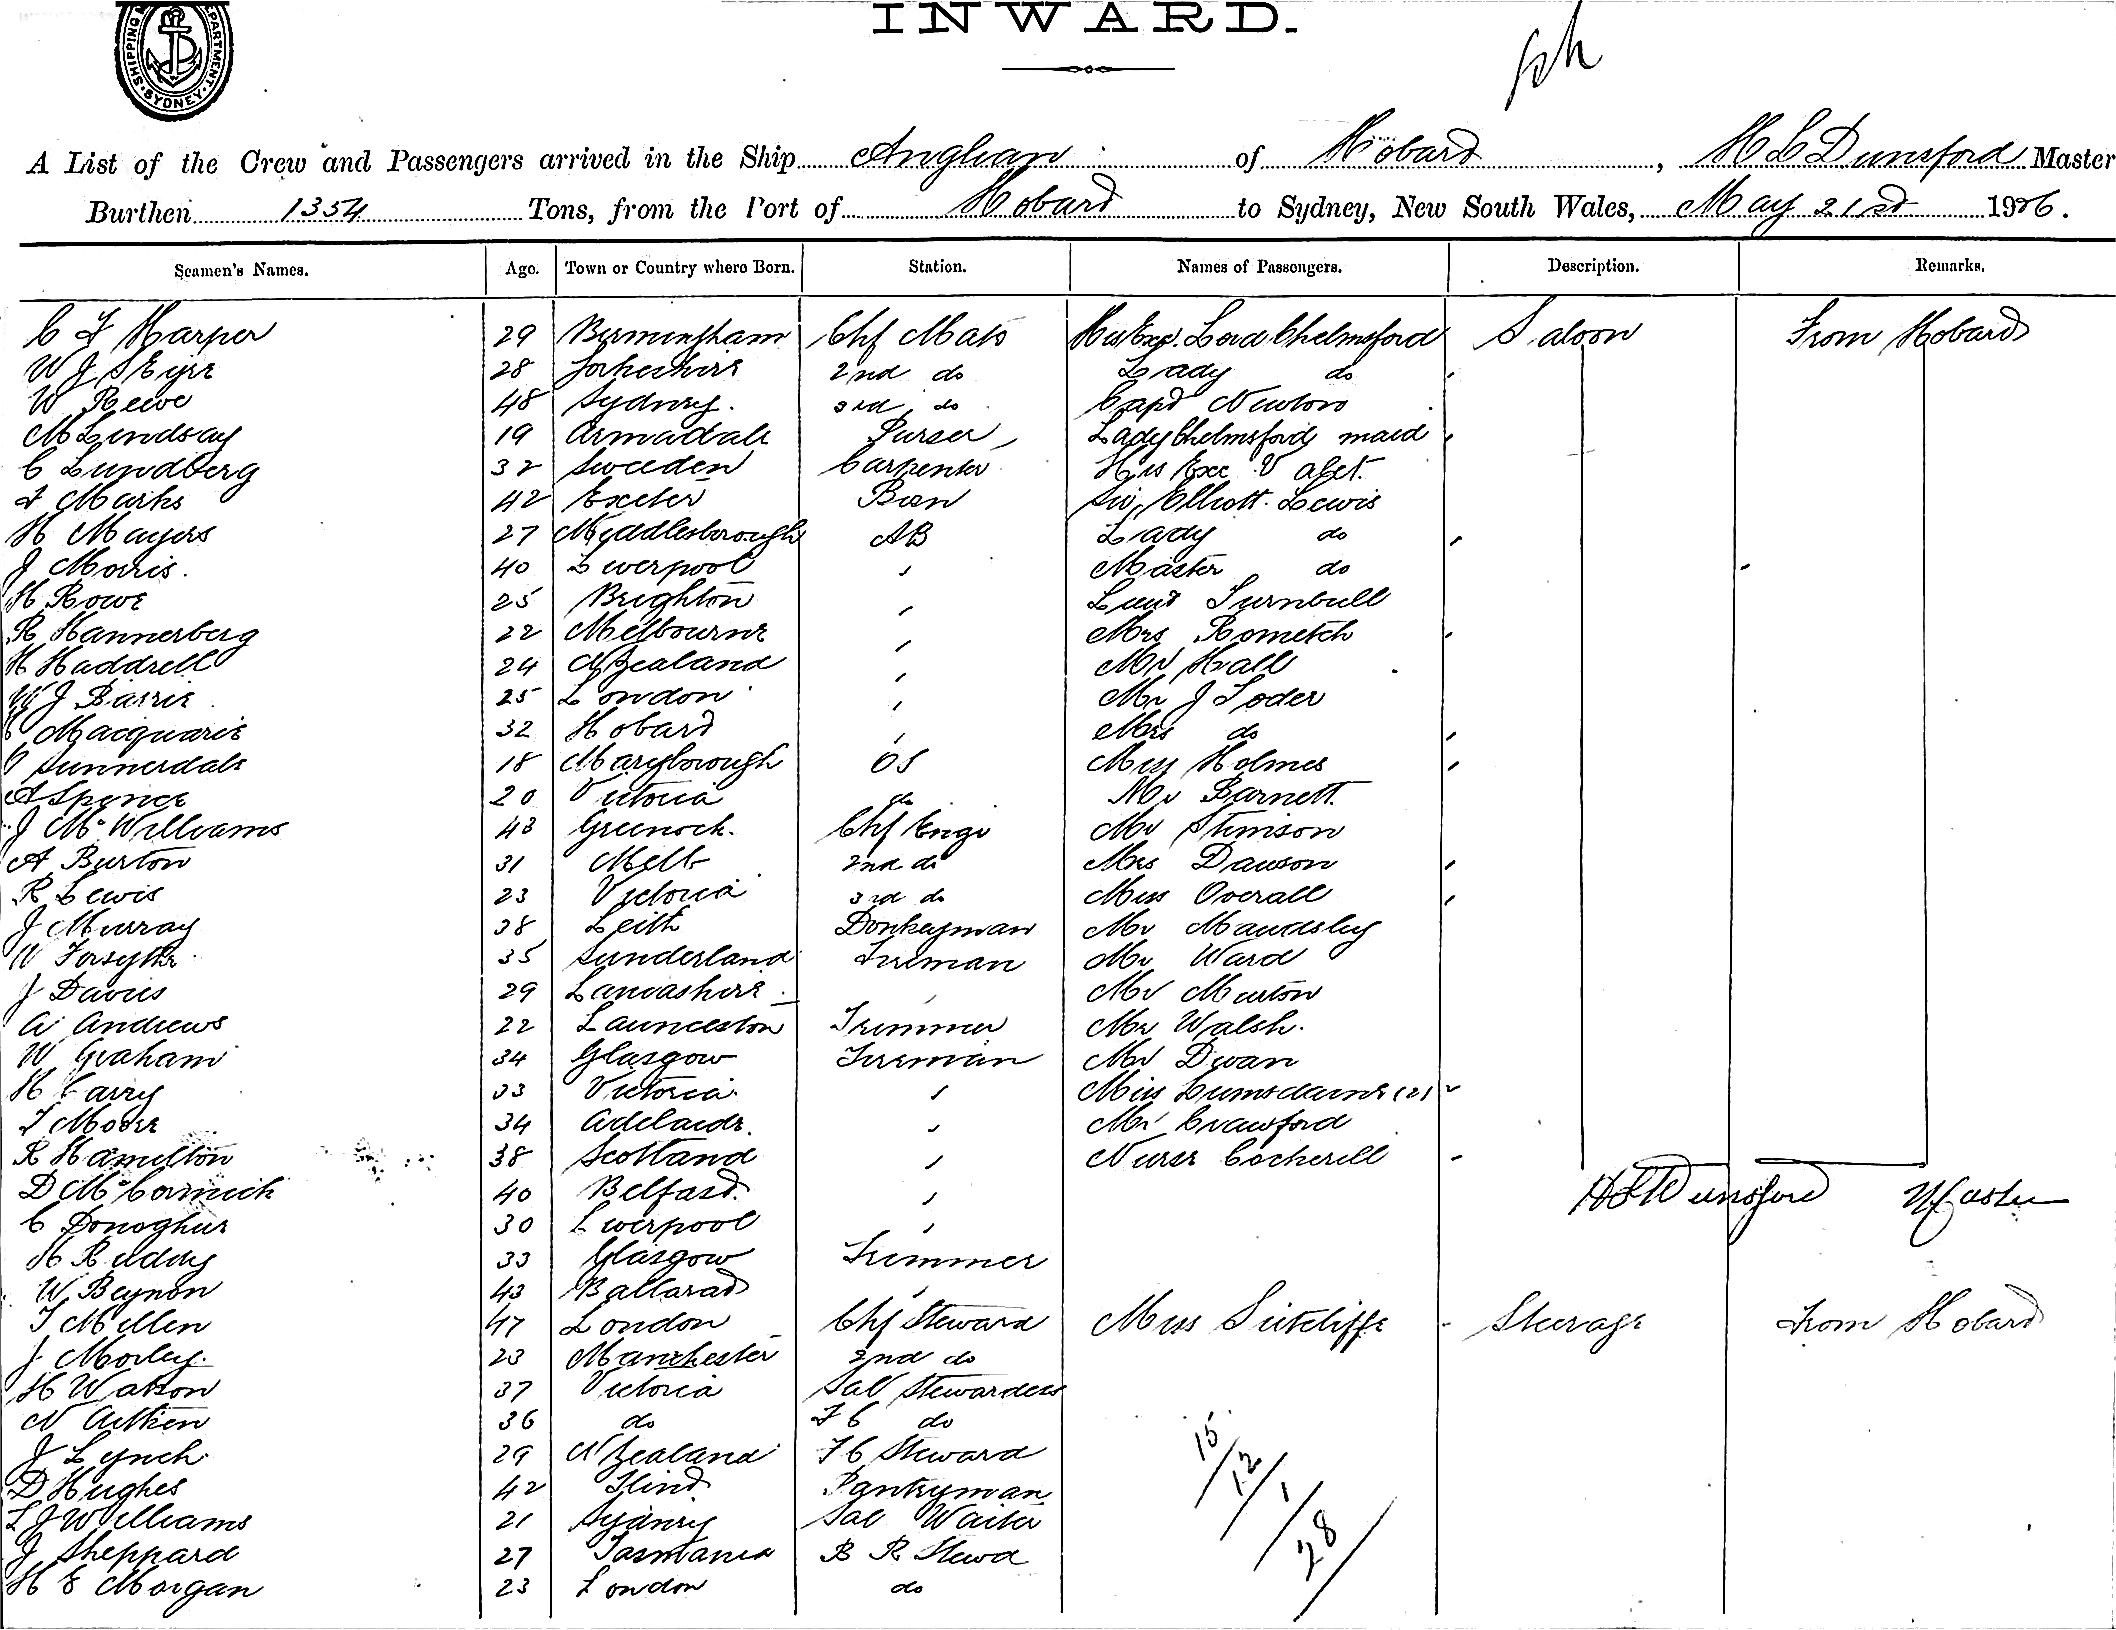 INWARD.
SHIPPING DEPARTMENT. SYDNEY
A List of the Crew and Passengers arrived in the Ship Anglian of Hobard, H L Dunsford Master
Burthen 1354 Tons, from the Port of Hobard to Sydney, New South Wales, May 21st 1906.
Seamen's Names. Age. Town or Country where Born. Station. Names of Passengers. Description. Remarks.
C F Harper 29 Birmingham Chf Mate His Exc. Lord Chelmsford Saloon From Hobard
W J S Eyre 28 Yorkeshire 2nd do Lady do
W Rewe 48 Sydney. 3rd do Capt Newton
M Lindsay 19 Armadale Purser Lady Chelmsford maid
C Lundberg 32 Sweeden Carpenter His Exc Valet.
F Marks 42 Exeter Bsn Sir Elliott Lewis
H Mayers 27 Middlesborough AB Lady do
J Morris. 40 Liverpool Master do
H Rowe 25 Brighton Lieut Turnbull
R Hannerberg 22 Melbourne Mrs Rometch
H Haddrell 24 N Zealand Mr Hall
W J Barrie 25 London Mr J Loder
Macquarie 32 Hobard Mrs do
Sunnerdale 18 Maryborough OS Miss Holmes
A Spence 20 Victoria do Mr Barnett.
J McWilliams 43 Greenock. Chf Engr Mr Stimson
A Burton 31 Melb 2nd do Mrs Dawson
R Lewis 23 Victoria 3rd do Miss Overall
J Murray 38 Leith Donkeyman Mr Maudsley
W Forsythe 35 Sunderland Fireman Mr Ward
J Davies 29 Lancashire Mr Murton
A Andrews 22 Launceston Trimmer Mr Walsh.
W Graham 34 Glasgow Fireman Mr Dwan
H Carry 33 Victoria. Miss Lumsdaine (2)
T Moore 34 Adelaide. Mr Crawford
R Hamilton 38 Scotland Nurse Cockerill
D McCormick 40 Belfast. H L Dunsford Master
C Donoghue 30 Liverpool
H Ruddy 33 Glasgow Trimmer
W Beynon 43 Ballarad
T Mellen 47 London Chf Steward Miss Sutcliffe Steerage From Hobard
J Morley. 23 Manchester 2nd do
H Watson 37 Victoria Sal Stewardess
N Aitken 36 do F C do
J Lynch 29 N Zealand F C Steward
D Hughes 42 Pantryman
L J Williams 21 Sydney Sal Waiter
J Sheppard 27 Tasmania B R Stewd
H E Morgan 23 London do
15/12/1/28/